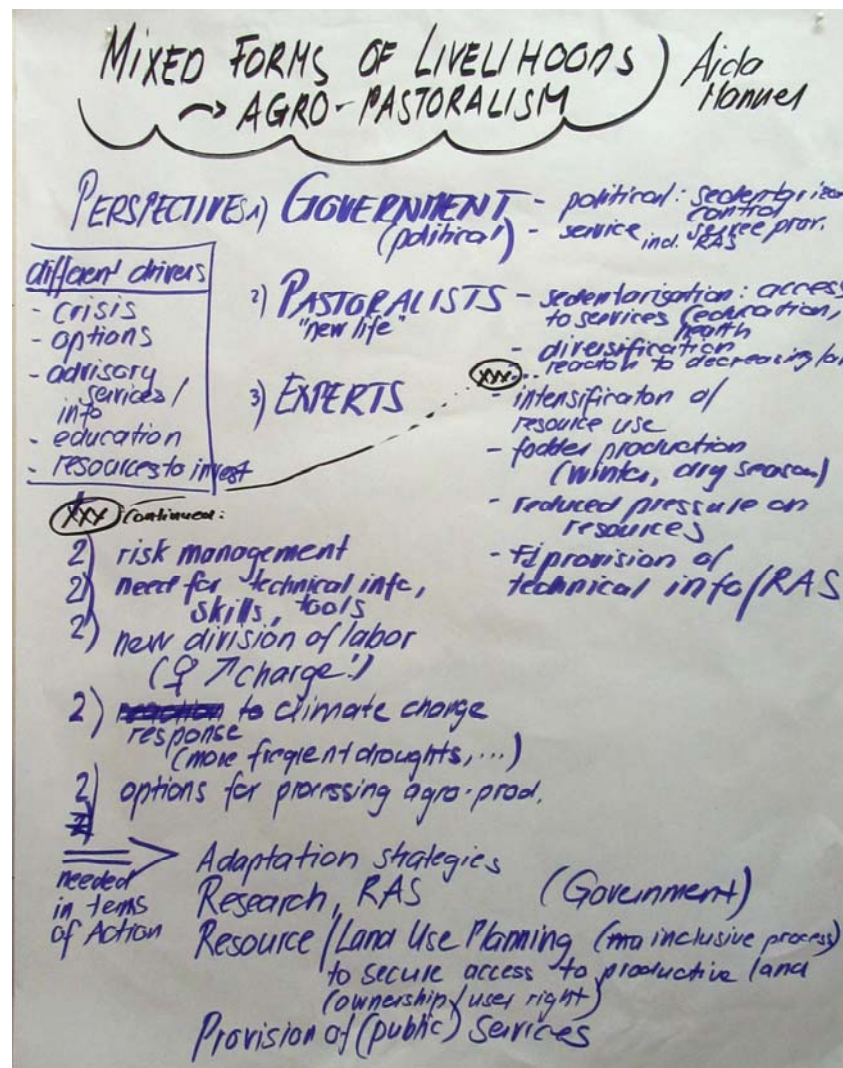 MIXED FORMS OF LIVELIHOODS
→ AGRO-PASTORALISM
Aida
Manuel
PERSPECTIVES
1) GOVERNMENT - political: sedentarization
(political)
control
- service incl. RAS
different drivers
- crisis
- options
- advisory
services /
info
- education
- resources to invest
2) PASTORALISTS - sedentarisation: access
"new life"
to services (education,
health
- diversification
xxx... reaction to decreasing
3) EXPERTS
- intensificaton of
resource use
- fodder production
(winter, dry season)
- reduced pressure on
resources
- provision of
technical info/RAS
xxx continued:
2) risk management
2) need for technical info,
skills, tools
2) new division of labor
(♀ ↗ charge!)
2) to climate change
response
(more frequent droughts, ...)
2) options for processing agro-prod.
⇒ Adaptation strategies
needed
in tems
of Action
Research, RAS (Government)
Resource / Land Use Planning (inclusive process)
to secure access to productive land
(ownership/user right)
Provision of (public) Services